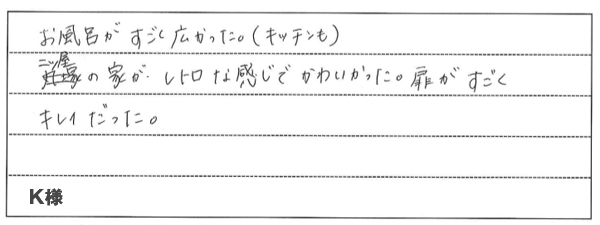 お風呂がすごく広かった。(キッチンも)
の家が、レトロな感じでかわいかった。扉がすごく
キレイだった。
K様